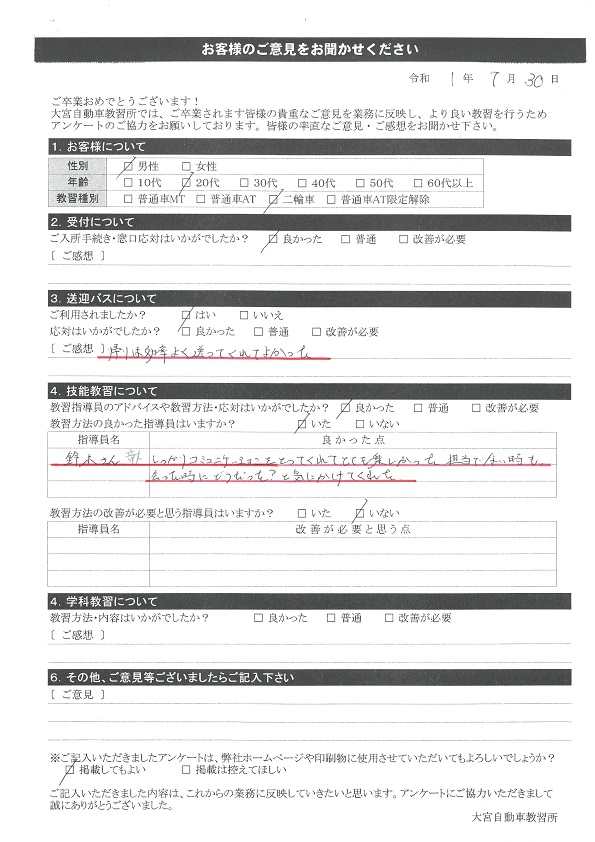 お客様のご意見をお聞かせください
令和 1 年 7 月 30 日
ご卒業おめでとうございます！
大宮自動車教習所では、ご卒業されます皆様の貴重なご意見を業務に反映し、より良い教習を行うため
アンケートのご協力をお願いしております。皆様の率直なご意見・ご感想をお聞かせ下さい。
1. お客様について
性別 □ 男性 □ 女性
年齢 □ 10代 □ 20代 □ 30代 □ 40代 □ 50代 □ 60代以上
教習種別 □ 普通車MT □ 普通車AT □ 二輪車 □ 普通車AT限定解除
2. 受付について
ご入所手続き・窓口応対はいかがでしたか？ □ 良かった □ 普通 □ 改善が必要
[ ご感想 ]
3. 送迎バスについて
ご利用されましたか？ □ はい □ いいえ
応対はいかがでしたか？ □ 良かった □ 普通 □ 改善が必要
[ ご感想 ] 帰りは効率よく送ってくれてよかった
4. 技能教習について
教習指導員のアドバイスや教習方法・応対はいかがでしたか？ □ 良かった □ 普通 □ 改善が必要
教習方法の良かった指導員はいますか？ □ いた □ いない
指導員名 良かった点
鈴木さん しっかりコミュニケーションをとってくれてとても楽しかった 担当でない時も
会った時にどうだった？と気にかけてくれた
教習方法の改善が必要と思う指導員はいますか？ □ いた □ いない
指導員名 改善が必要と思う点
4. 学科教習について
教習方法・内容はいかがでしたか？ □ 良かった □ 普通 □ 改善が必要
[ ご感想 ]
6. その他、ご意見等ございましたらご記入下さい
[ ご意見 ]
※ご記入いただきましたアンケートは、弊社ホームページや印刷物に使用させていただいてもよろしいでしょうか？
□ 掲載してもよい □ 掲載は控えてほしい
ご記入いただきました内容は、これからの業務に反映していきたいと思います。アンケートにご協力いただきまして
誠にありがとうございました。
大宮自動車教習所